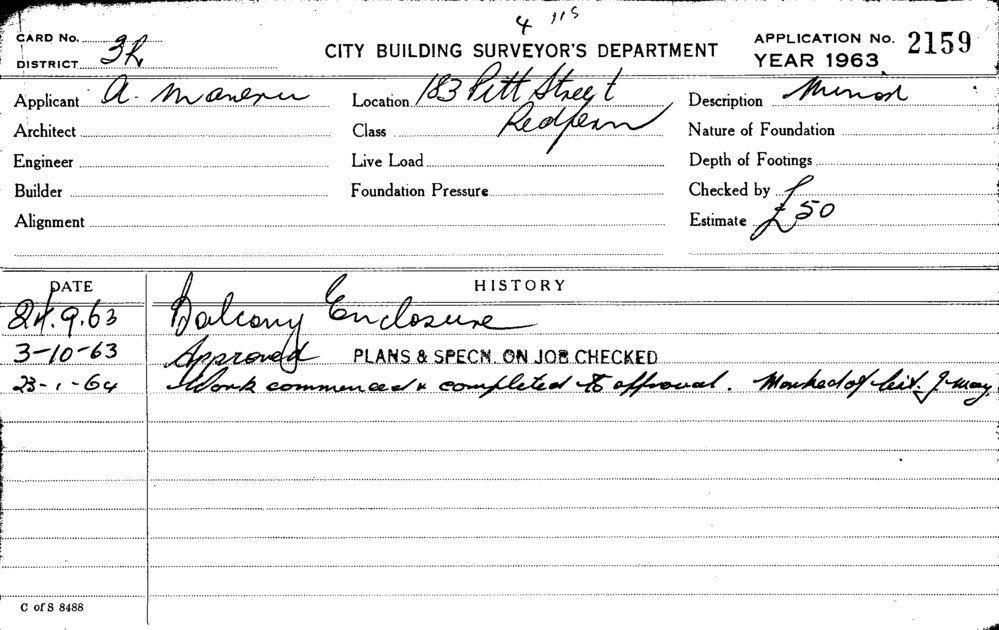 4 115
CARD No.
CITY BUILDING SURVEYOR'S DEPARTMENT
APPLICATION No. 2159
DISTRICT 3R
YEAR 1963
Applicant A.
Location 183 Pitt Street
Description Minor
Architect
Class Redfern
Nature of Foundation
Engineer
Live Load
Depth of Footings
Builder
Foundation Pressure
Checked by
Alignment
Estimate £50
DATE
HISTORY
24.9.63 Balcony Enclosure
3-10-63 Approved PLANS & SPECN. ON JOB CHECKED
23-1-64 Work commenced & completed to approval. Marked of list. J. May.
C of S 8488